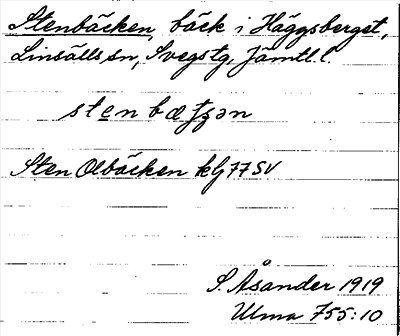 Stenbäcken, bäck i Häggsberget,
Linsälls sn, Svegs tg, Jämtl. l.
Sten Olbäcken klj 77 SV
S. Åsander 1919
Ulma 755:10